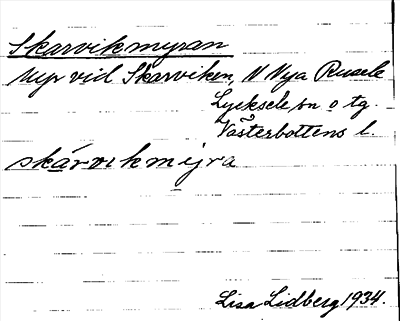 Skarvikmyran
Myr vid Skarviken, N Nya Rusele
Lycksele sn o tg.
Västerbottens l.
skárvikmyra
Lisa Lidberg 1934.